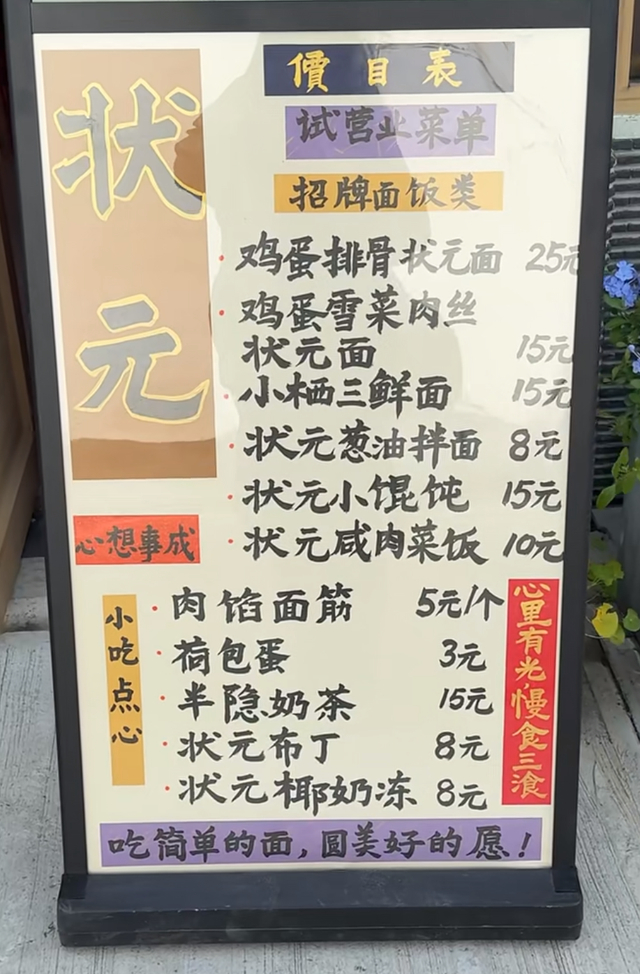 状元
價目表
试营业菜单
招牌面饭类
鸡蛋排骨状元面 25元
鸡蛋雪菜肉丝
状元面 15元
小栖三鲜面 15元
状元葱油拌面 8元
状元小馄饨 15元
状元咸肉菜饭 10元
心想事成
小吃点心
肉馅面筋 5元/个
荷包蛋 3元
半隐奶茶 15元
状元布丁 8元
状元椰奶冻 8元
心里有光,慢食三飡
吃简单的面,圆美好的愿!